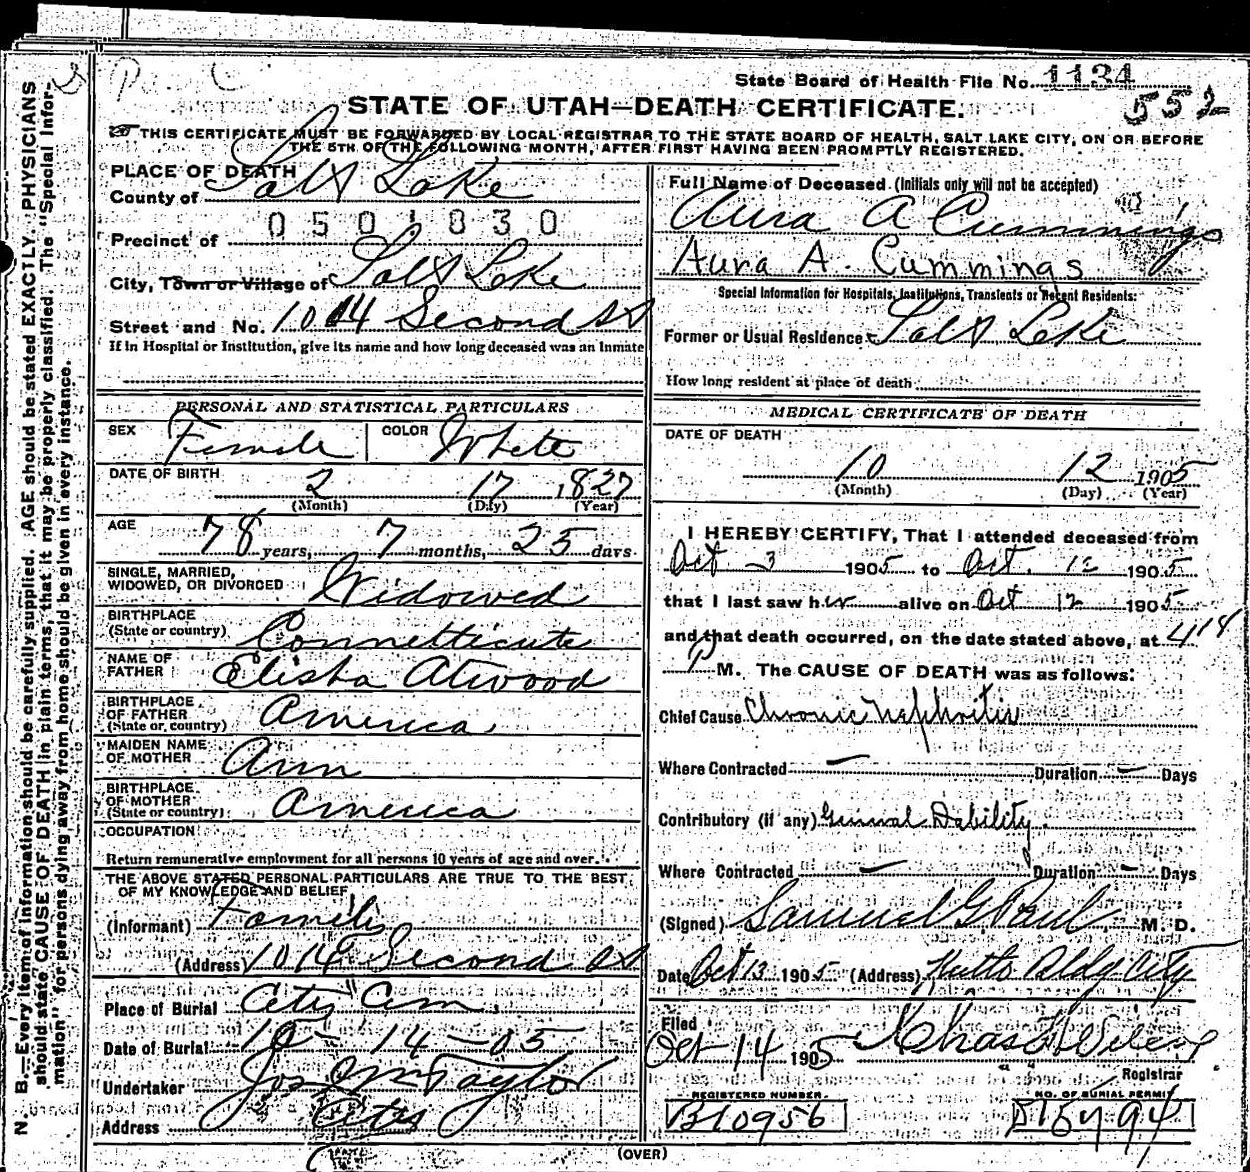 State Board of Health File No. 1134
552
STATE OF UTAH—DEATH CERTIFICATE.
THIS CERTIFICATE MUST BE FORWARDED BY LOCAL REGISTRAR TO THE STATE BOARD OF HEALTH, SALT LAKE CITY, ON OR BEFORE
THE 5TH OF THE FOLLOWING MONTH, AFTER FIRST HAVING BEEN PROMPTLY REGISTERED.
N. B.—Every item of information should be carefully supplied. AGE should be stated EXACTLY. PHYSICIANS
should state CAUSE OF DEATH in plain terms, that it may be properly classified. The "Special Infor-
mation" for persons dying away from home should be given in every instance.
PLACE OF DEATH
County of Salt Lake
0501830
Precinct of
City, Town or Village of Salt Lake
Street and No. 1014 Second St
If in Hospital or Institution, give its name and how long deceased was an Inmate
PERSONAL AND STATISTICAL PARTICULARS
SEX Female COLOR White
DATE OF BIRTH 2 17 1827
(Month) (Day) (Year)
AGE 78 years, 7 months, 25 days
SINGLE, MARRIED,
WIDOWED, OR DIVORCED Widowed
BIRTHPLACE
(State or country) Connetticute
NAME OF
FATHER Elisha Atwood
BIRTHPLACE
OF FATHER
(State or country) America
MAIDEN NAME
OF MOTHER Ann
BIRTHPLACE
OF MOTHER
(State or country) America
OCCUPATION
Return remunerative employment for all persons 10 years of age and over.
THE ABOVE STATED PERSONAL PARTICULARS ARE TRUE TO THE BEST
OF MY KNOWLEDGE AND BELIEF
(Informant) Family
(Address) 1014 Second St
Place of Burial City Cem
Date of Burial 10-14-05
Undertaker Jos Wm Taylor
Address City
Full Name of Deceased (Initials only will not be accepted)
Aura A Cummings
Aura A. Cummings
Special Information for Hospitals, Institutions, Transients or Recent Residents:
Former or Usual Residence Salt Lake
How long resident at place of death
MEDICAL CERTIFICATE OF DEATH
DATE OF DEATH
10 12 1905
(Month) (Day) (Year)
I HEREBY CERTIFY, That I attended deceased from
Oct 3 1905 to Oct. 12 1905
that I last saw her alive on Oct 12 1905
and that death occurred, on the date stated above, at 4
P M. The CAUSE OF DEATH was as follows:
Chief Cause Chronic Nephritis
Where Contracted — Duration — Days
Contributory (if any) General Debility
Where Contracted — Duration — Days
(Signed) Samuel G. Paul M. D.
Date Oct 13 1905 (Address) Bldg City
Filed
Oct 14 1905 Chas
Registrar
REGISTERED NUMBER
B10956
NO. OF BURIAL PERMIT
(OVER)